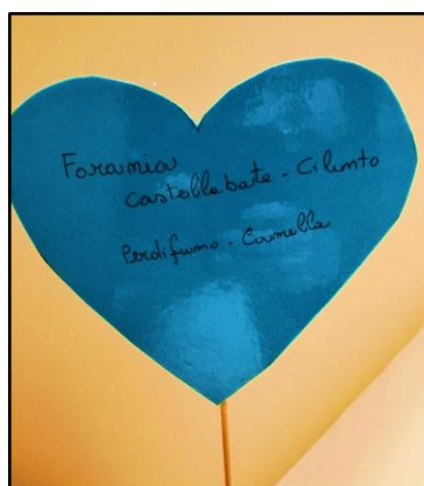 Forania
Castellabate - Cilento
Perdifumo - Camella